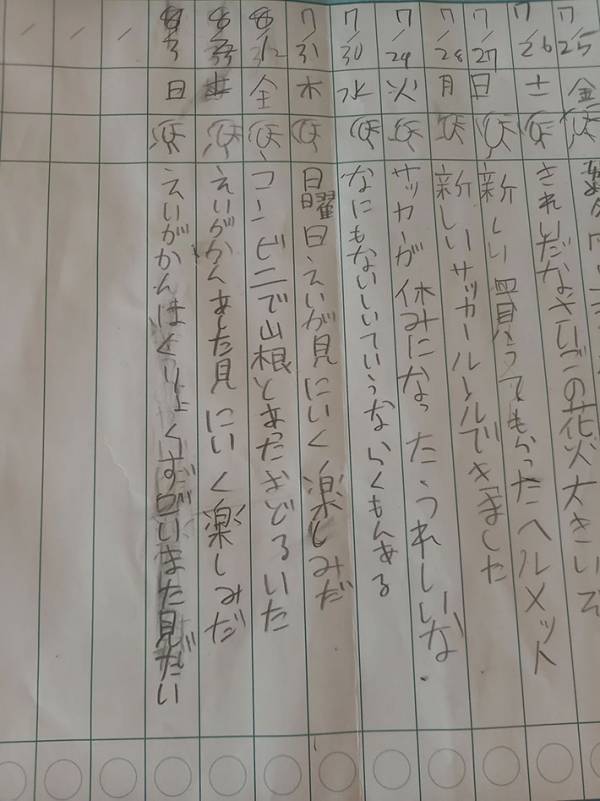 7/25 金
7/26 土 きれいだなさいごの花火大きいぞ
7/27 日 新しい買ってもらったヘルメット
7/28 月 新しいサッカールールできました
7/29 火 サッカーが休みになったうれしいな.
7/30 水 なにもないしいていうならくもんある
7/31 木 日曜日えいが見にいく楽しみだ
金 コンビニで山根とあったぎどろいた
えいがかんあした見にいく楽しみだ
8/3 日 えいがかんはくりょくがすごいまた見たい